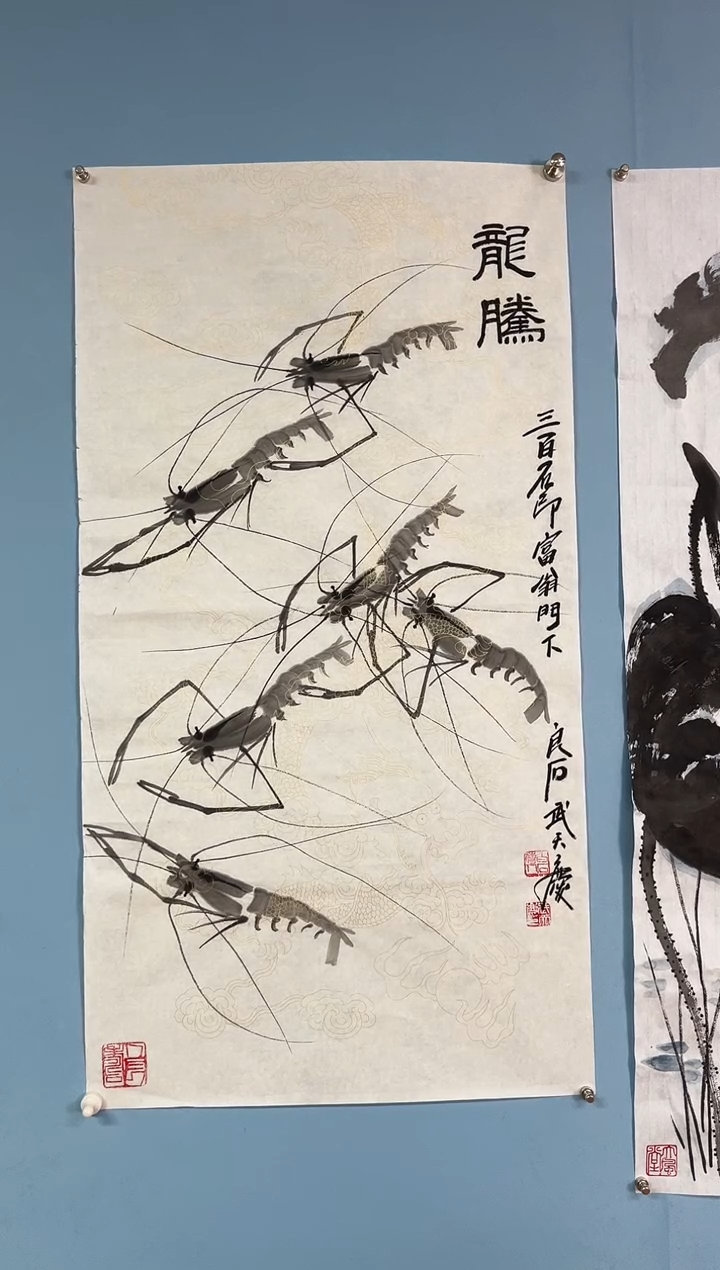 龍騰
三百石印富翁門下
良石武天